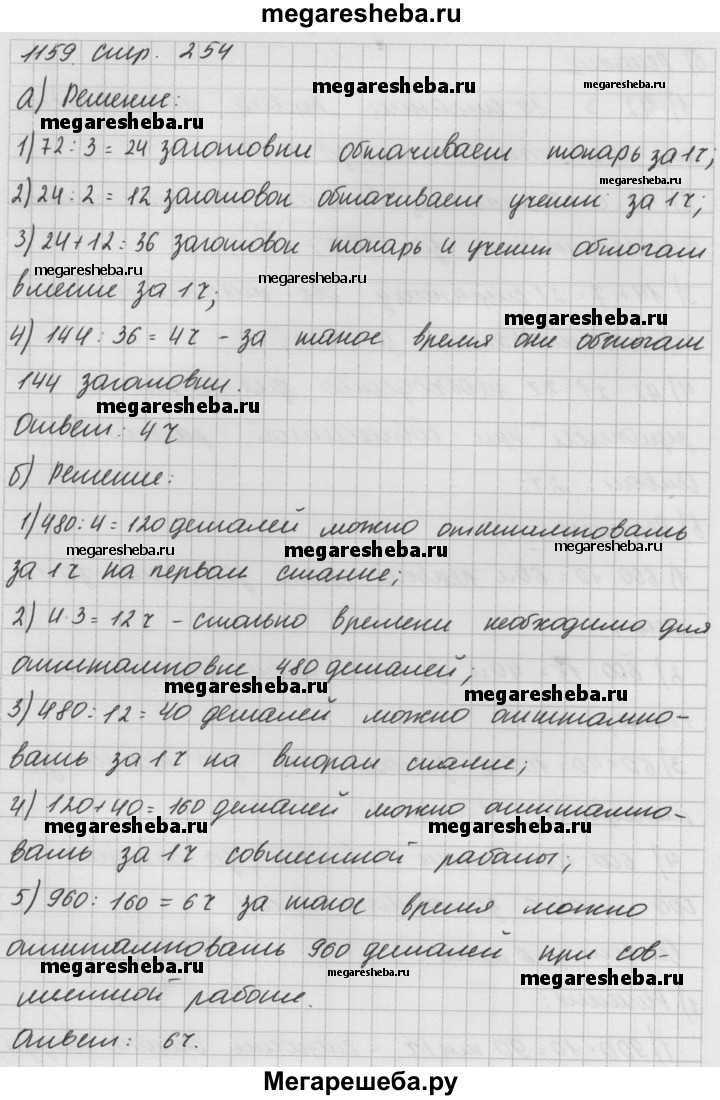 megaresheba.ru
1159 стр. 254
megaresheba.ru
megaresheba.ru
а) Решение:
megaresheba.ru
1) 72 : 3 = 24 заготовки обтачивает токарь за 1 ч;
megaresheba.ru
2) 24 : 2 = 12 заготовок обтачивает ученик за 1 ч;
3) 24 + 12 = 36 заготовок токарь и ученик обтогат
megaresheba.ru
megaresheba.ru
вместе за 1 ч;
megaresheba.ru
4) 144 : 36 = 4 ч - за такое время они обтогат
144 заготовки.
megaresheba.ru
Ответ: 4 ч
б) Решение:
1) 480 : 4 = 120 деталей можно отштамповать
megaresheba.ru
megaresheba.ru
megaresheba.ru
за 1 ч на первом станке;
2) 4 · 3 = 12 ч - столько времени необходимо для
отштамповке 480 деталей;
megaresheba.ru
megaresheba.ru
3) 480 : 12 = 40 деталей можно отштампо-
вать за 1 ч на втором станке;
4) 120 + 40 = 160 деталей можно отштампо-
megaresheba.ru
megaresheba.ru
вать за 1 ч совместной работы;
5) 960 : 160 = 6 ч за такое время можно
отштамповать 960 деталей при сов-
megaresheba.ru
megaresheba.ru
megaresheba.ru
местной работе.
Ответ: 6 ч.
Мегарешеба.ру